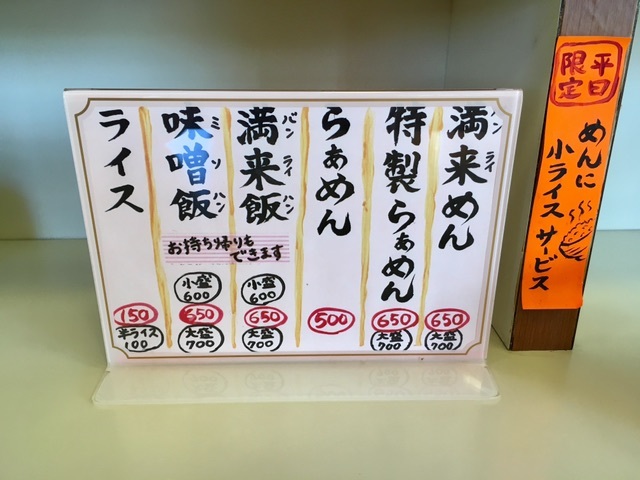 満来めん
バンライ
650
大盛
700
特製らぁめん
650
大盛
700
らぁめん
500
満来飯
バンライハン
小盛
600
650
大盛
700
味噌飯
ミソハン
小盛
600
650
大盛
700
お持ち帰りも
できます
ライス
150
半ライス
100
平日
限定
めんに
小ライスサービス